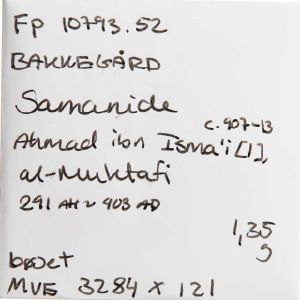 Fp 10793.52
BAKKEGÅRD
Samanide
c. 907-13
Ahmad ibn Isma'i[l],
al-Muktafi
291 AH ~ 903 AD
1,35 g
bøjet
MVE 3284 x 121